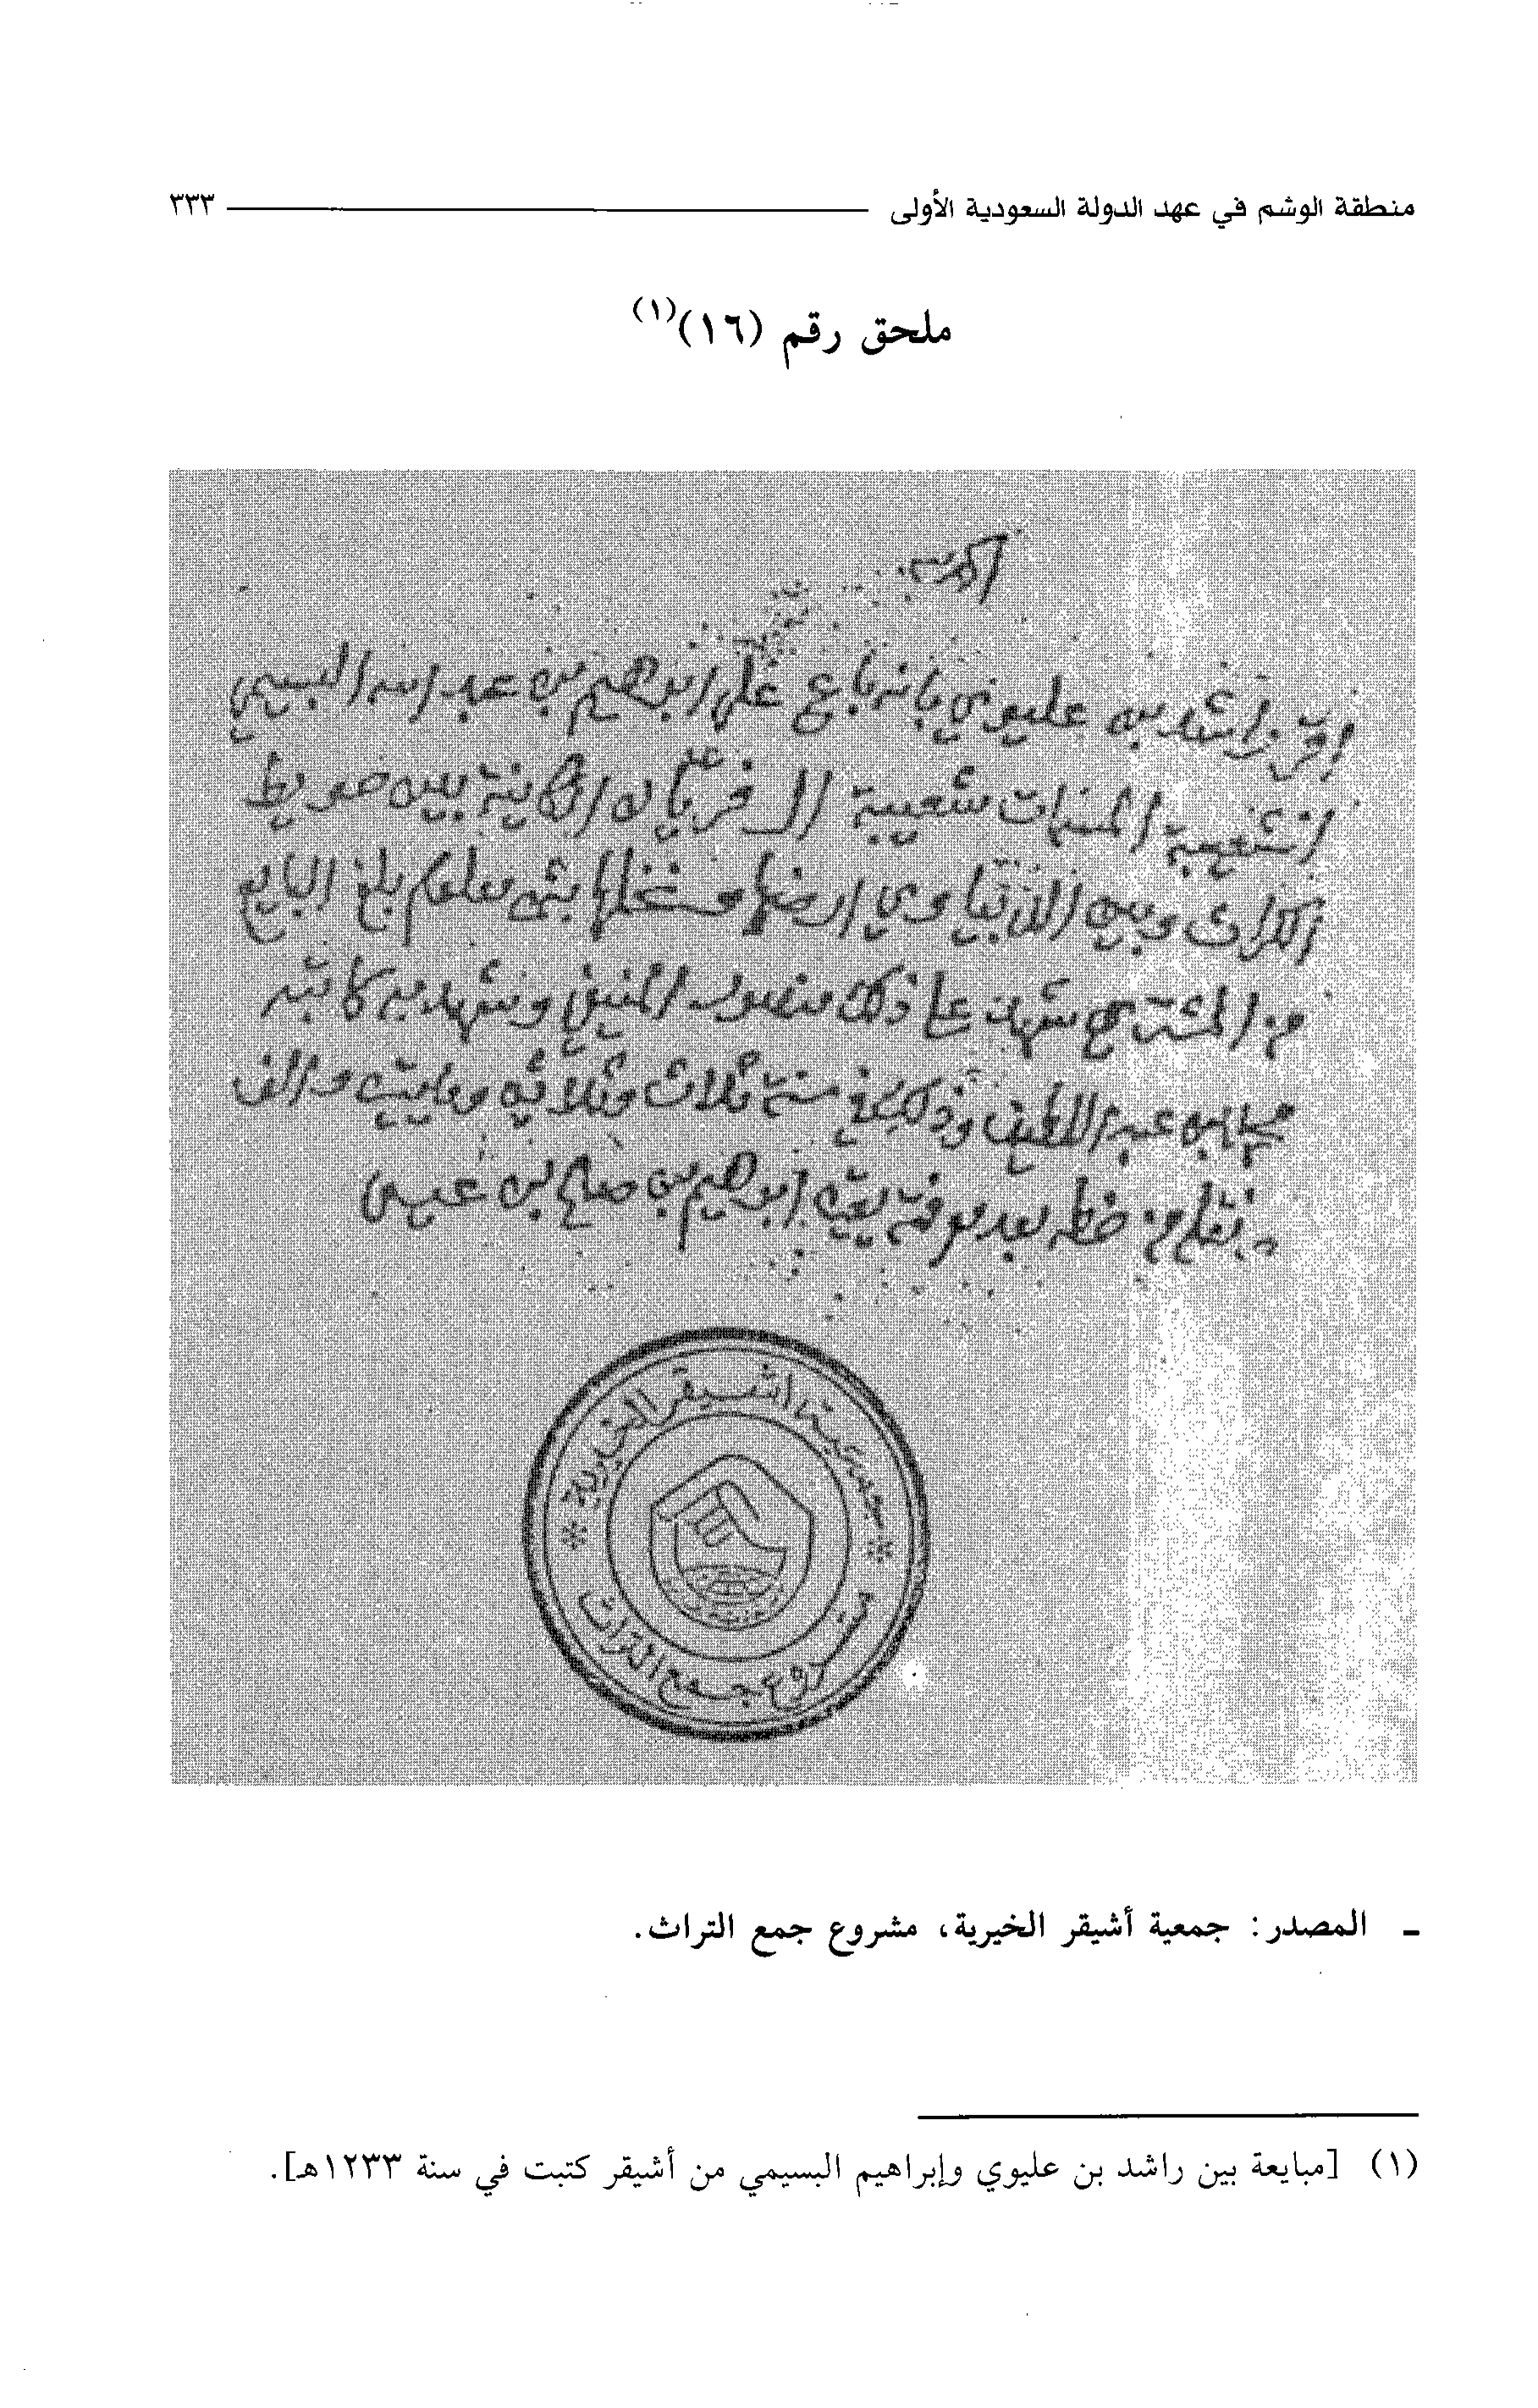 منطقة الوشم في عهد الدولة السعودية الأولى ٣٣٣
ملحق رقم (١٦)(١)
اقر راشد بن عليوي بانه باع على ابرهيم بن عبد الله البسيمي
المسمات شعيبة الكاينة بين
وبين ارضها ونخلها بثمن معلوم بلغ البايع
من المشتري شهد على ذلك منصور وشهد به كاتبه
محمد بن عبد اللطيف وذلك في سنة ثلاث وثلاثين ومايتين والف
نقله من خطه بعد معرفته يقينا ابرهيم بن صالح بن عيسى
جمعية اشيقر الخيرية
مشروع جمع التراث
ـ المصدر: جمعية أشيقر الخيرية، مشروع جمع التراث.
(١) [مبايعة بين راشد بن عليوي وإبراهيم البسيمي من أشيقر كتبت في سنة ١٢٣٣هـ].